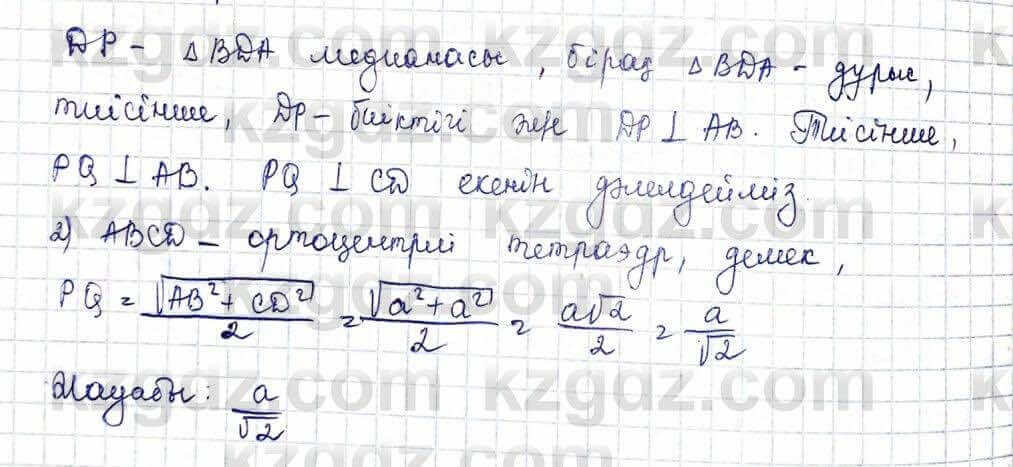 DP – △BDA медианасы, бірақ △BDA – дұрыс,
тиісінше, DP – биіктігі және DP ⊥ AB. Тиісінше,
PQ ⊥ AB. PQ ⊥ CD екенін дәлелдейміз.
2) ABCD – ортоцентрлі тетраэдр, демек,
PQ = √(AB²+CD²)/2 = √(a²+a²)/2 = a√2/2 = a/√2
Жауабы: a/√2
kzgdz.com